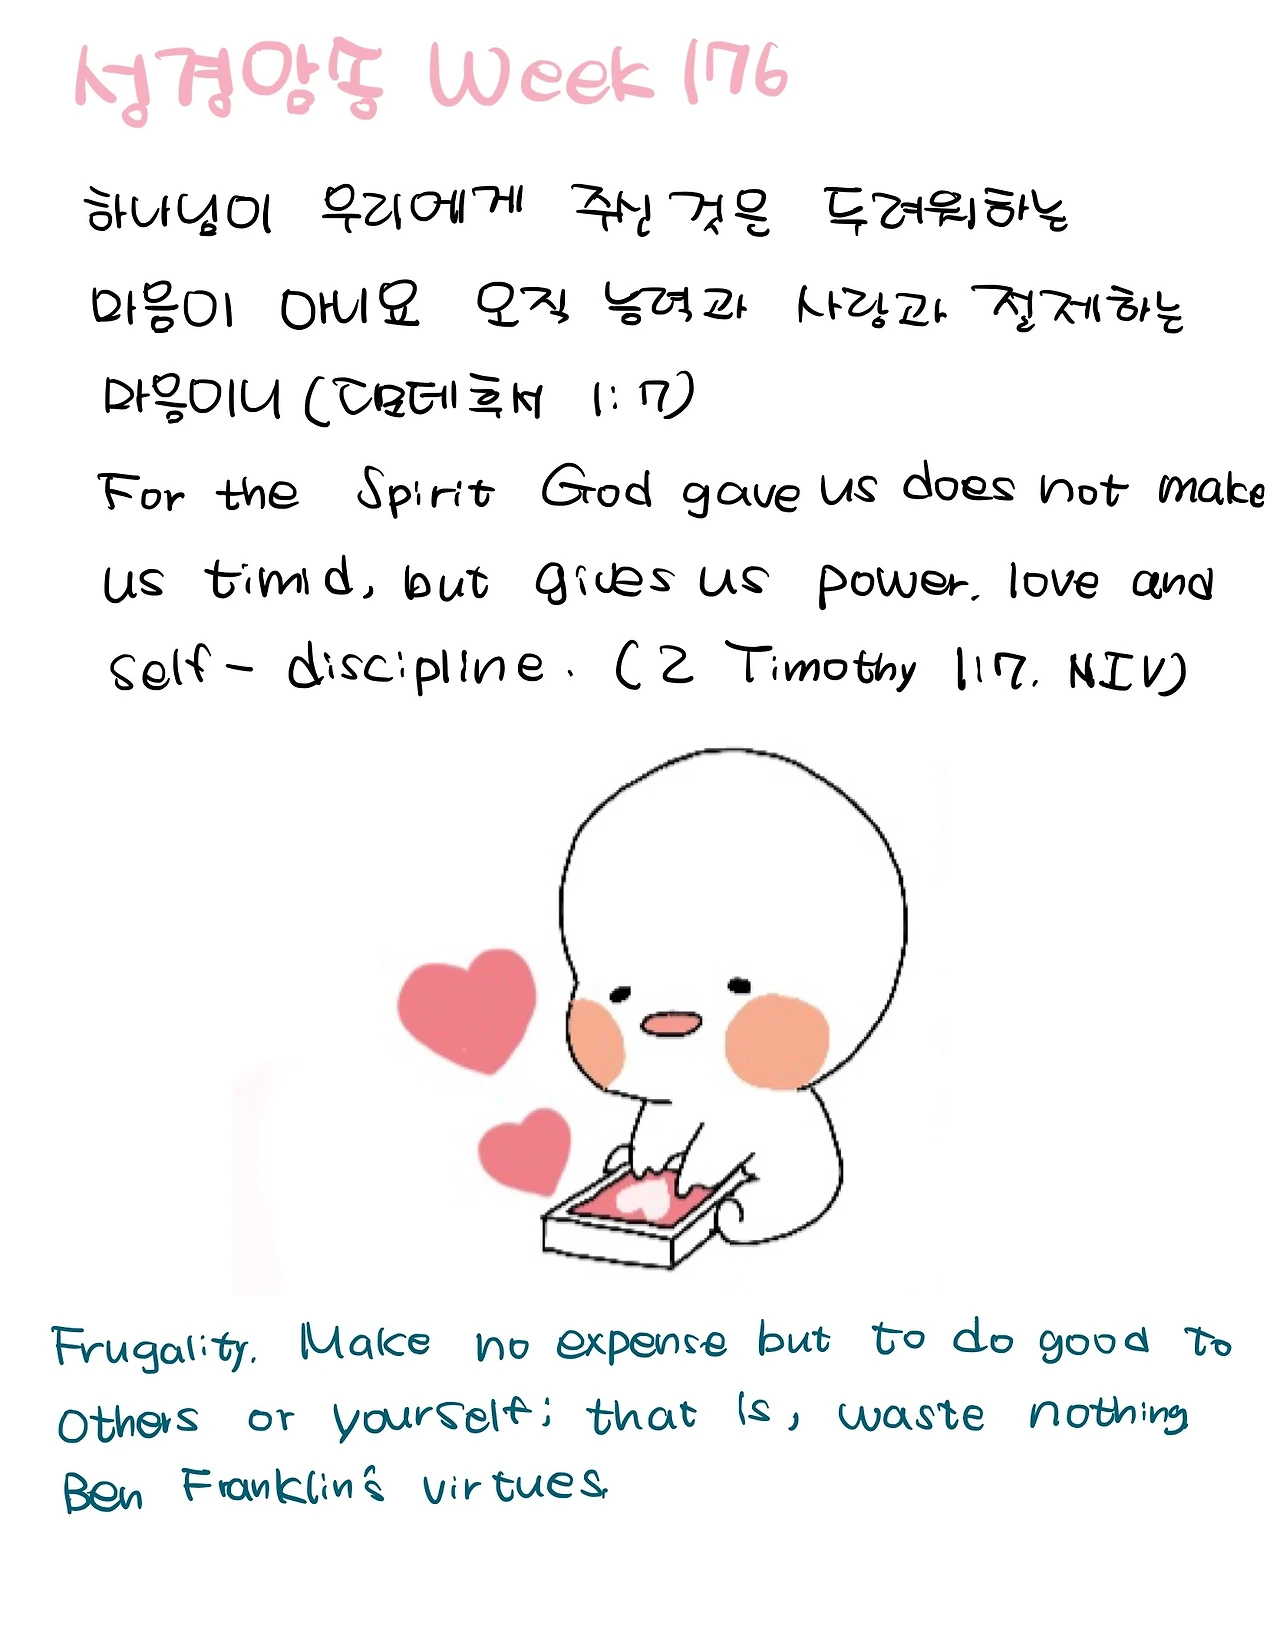 성경암송 Week 176
하나님이 우리에게 주신 것은 두려워하는
마음이 아니요 오직 능력과 사랑과 절제하는
마음이니 (디모데후서 1:7)
For the Spirit God gave us does not make
us timid, but gives us power. love and
self-discipline. (2 Timothy 1:7. NIV)
Frugality. Make no expense but to do good to
others or yourself; that is, waste nothing
Ben Franklin's virtues